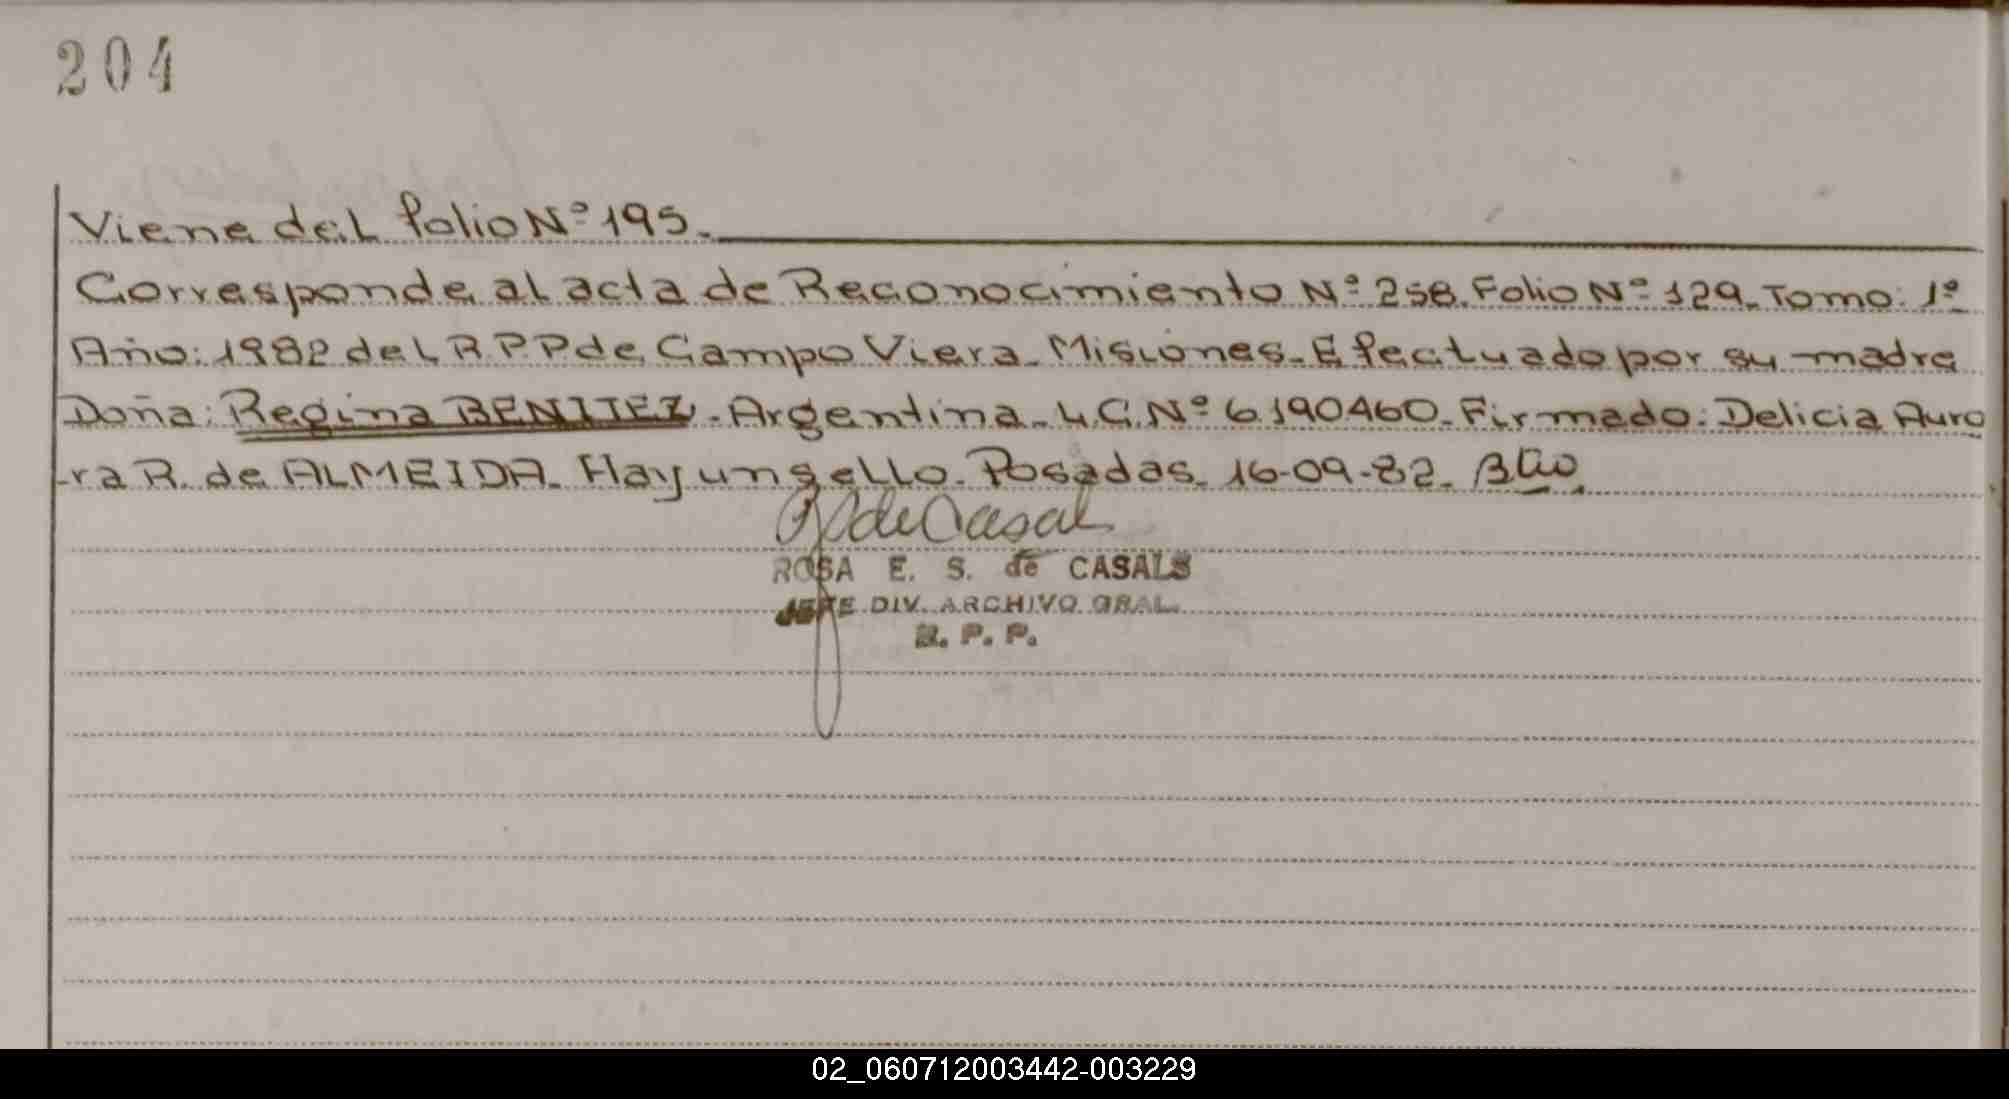 204
Viene del folio Nº 195.
Corresponde al acta de Reconocimiento Nº 258. Folio Nº 129. Tomo: 1º
Año: 1982 del R.P.P de Campo Viera. Misiones. Efectuado por su madre
Doña: Regina BENITEZ. Argentina. L.C. Nº 6.190460. Firmado: Delicia Auro
-ra R. de ALMEIDA. Hay un sello. Posadas. 16-09-82.
de Casals
ROSA E. S. de CASALS
JEFE DIV. ARCHIVO GRAL.
R. P. P.
02_060712003442-003229